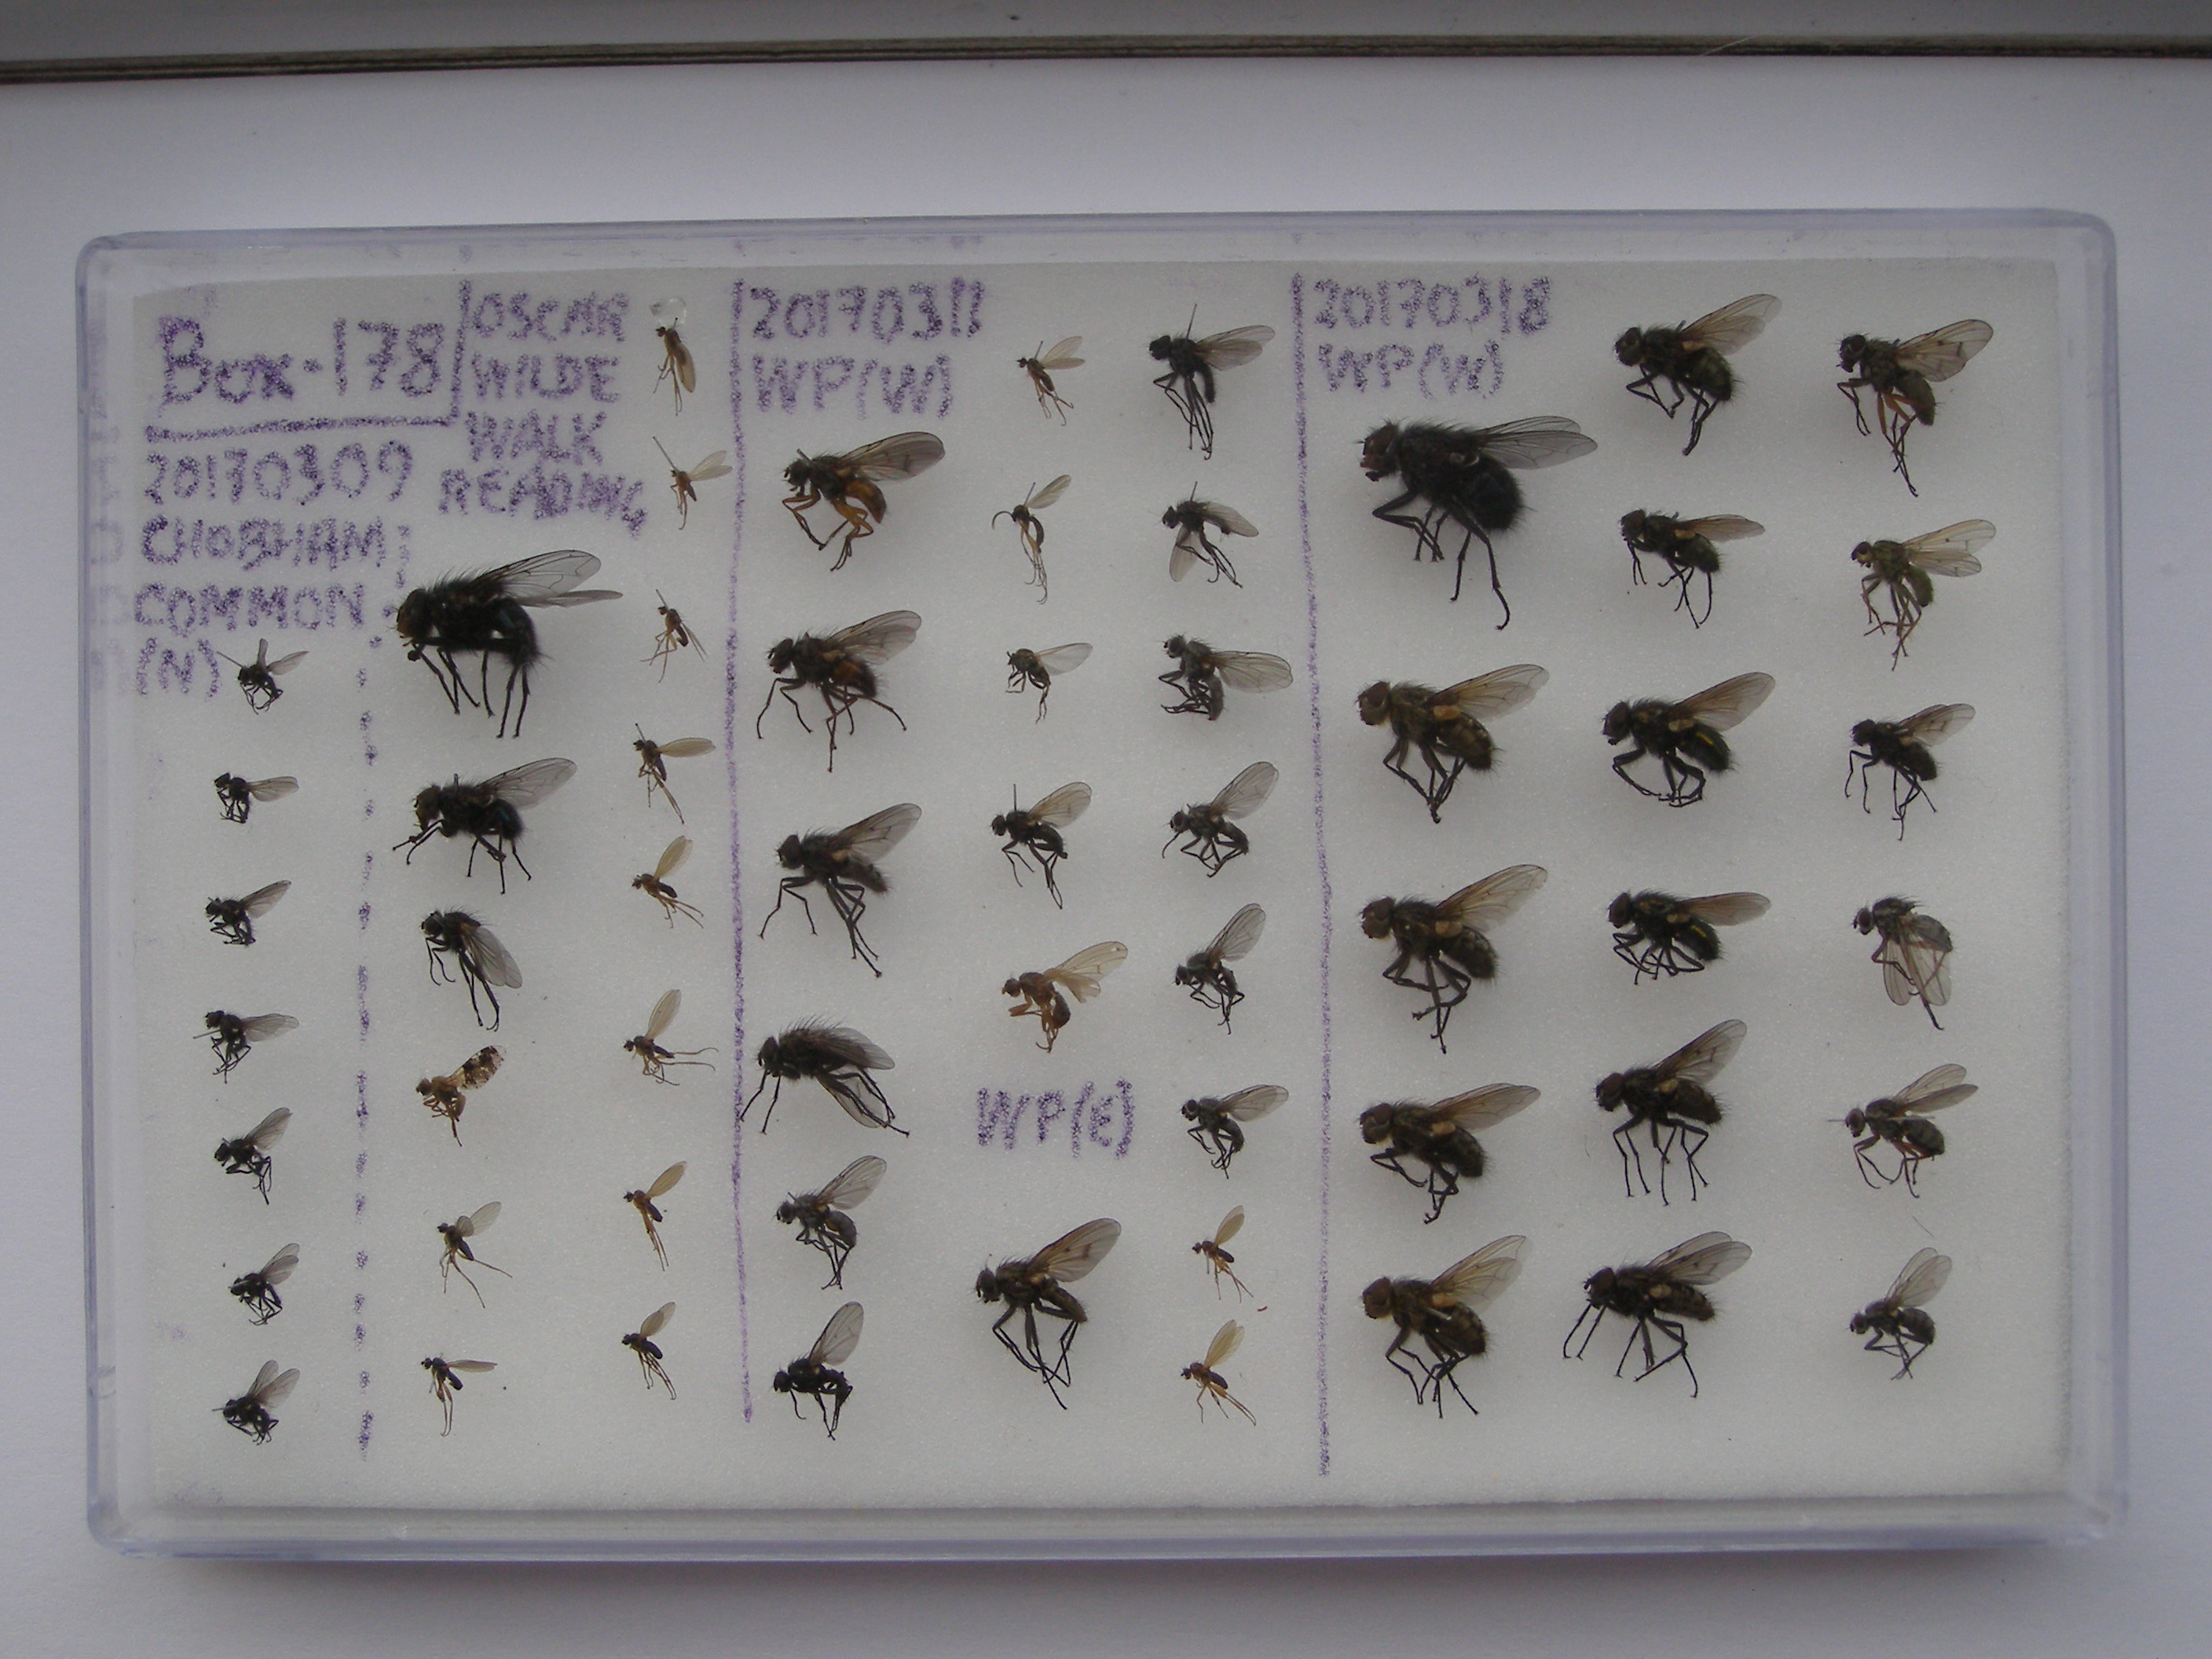 Box-178
20170309
CHOBHAM
COMMON
(N)
OSCAR
WILDE
WALK
READING
20170311
WP(W)
WP(E)
20170318
WP(W)